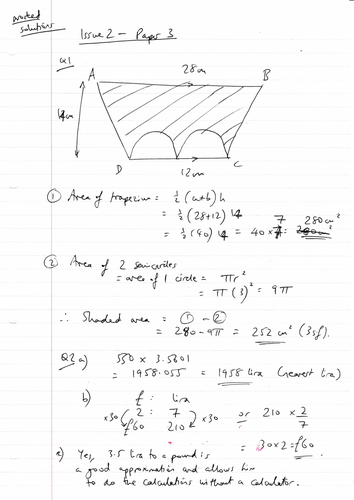 worked
solutions
Issue 2 - Paper 3
Q1
A
28cm
B
14cm
D
12cm
C
① Area of trapezium = ½(a+b)h
= ½(28+12)14
= ½(40)14 = 40×7 = 280cm²
② Area of 2 semicircles
= area of 1 circle = πr²
= π(3)² = 9π
∴ Shaded area = ① - ②
= 280-9π = 252 cm² (3sf)
Q2 a) 550 × 3.5601
= 1958.055 = 1958 lira (nearest lira)
b) £ : lira
×30 ( 2 : 7 ) ×30 or 210 × 2/7
£60 210
= 30×2 = £60
c) Yes, 3.5 lira to a pound is
a good approximation and allows him
to do the calculations without a calculator.